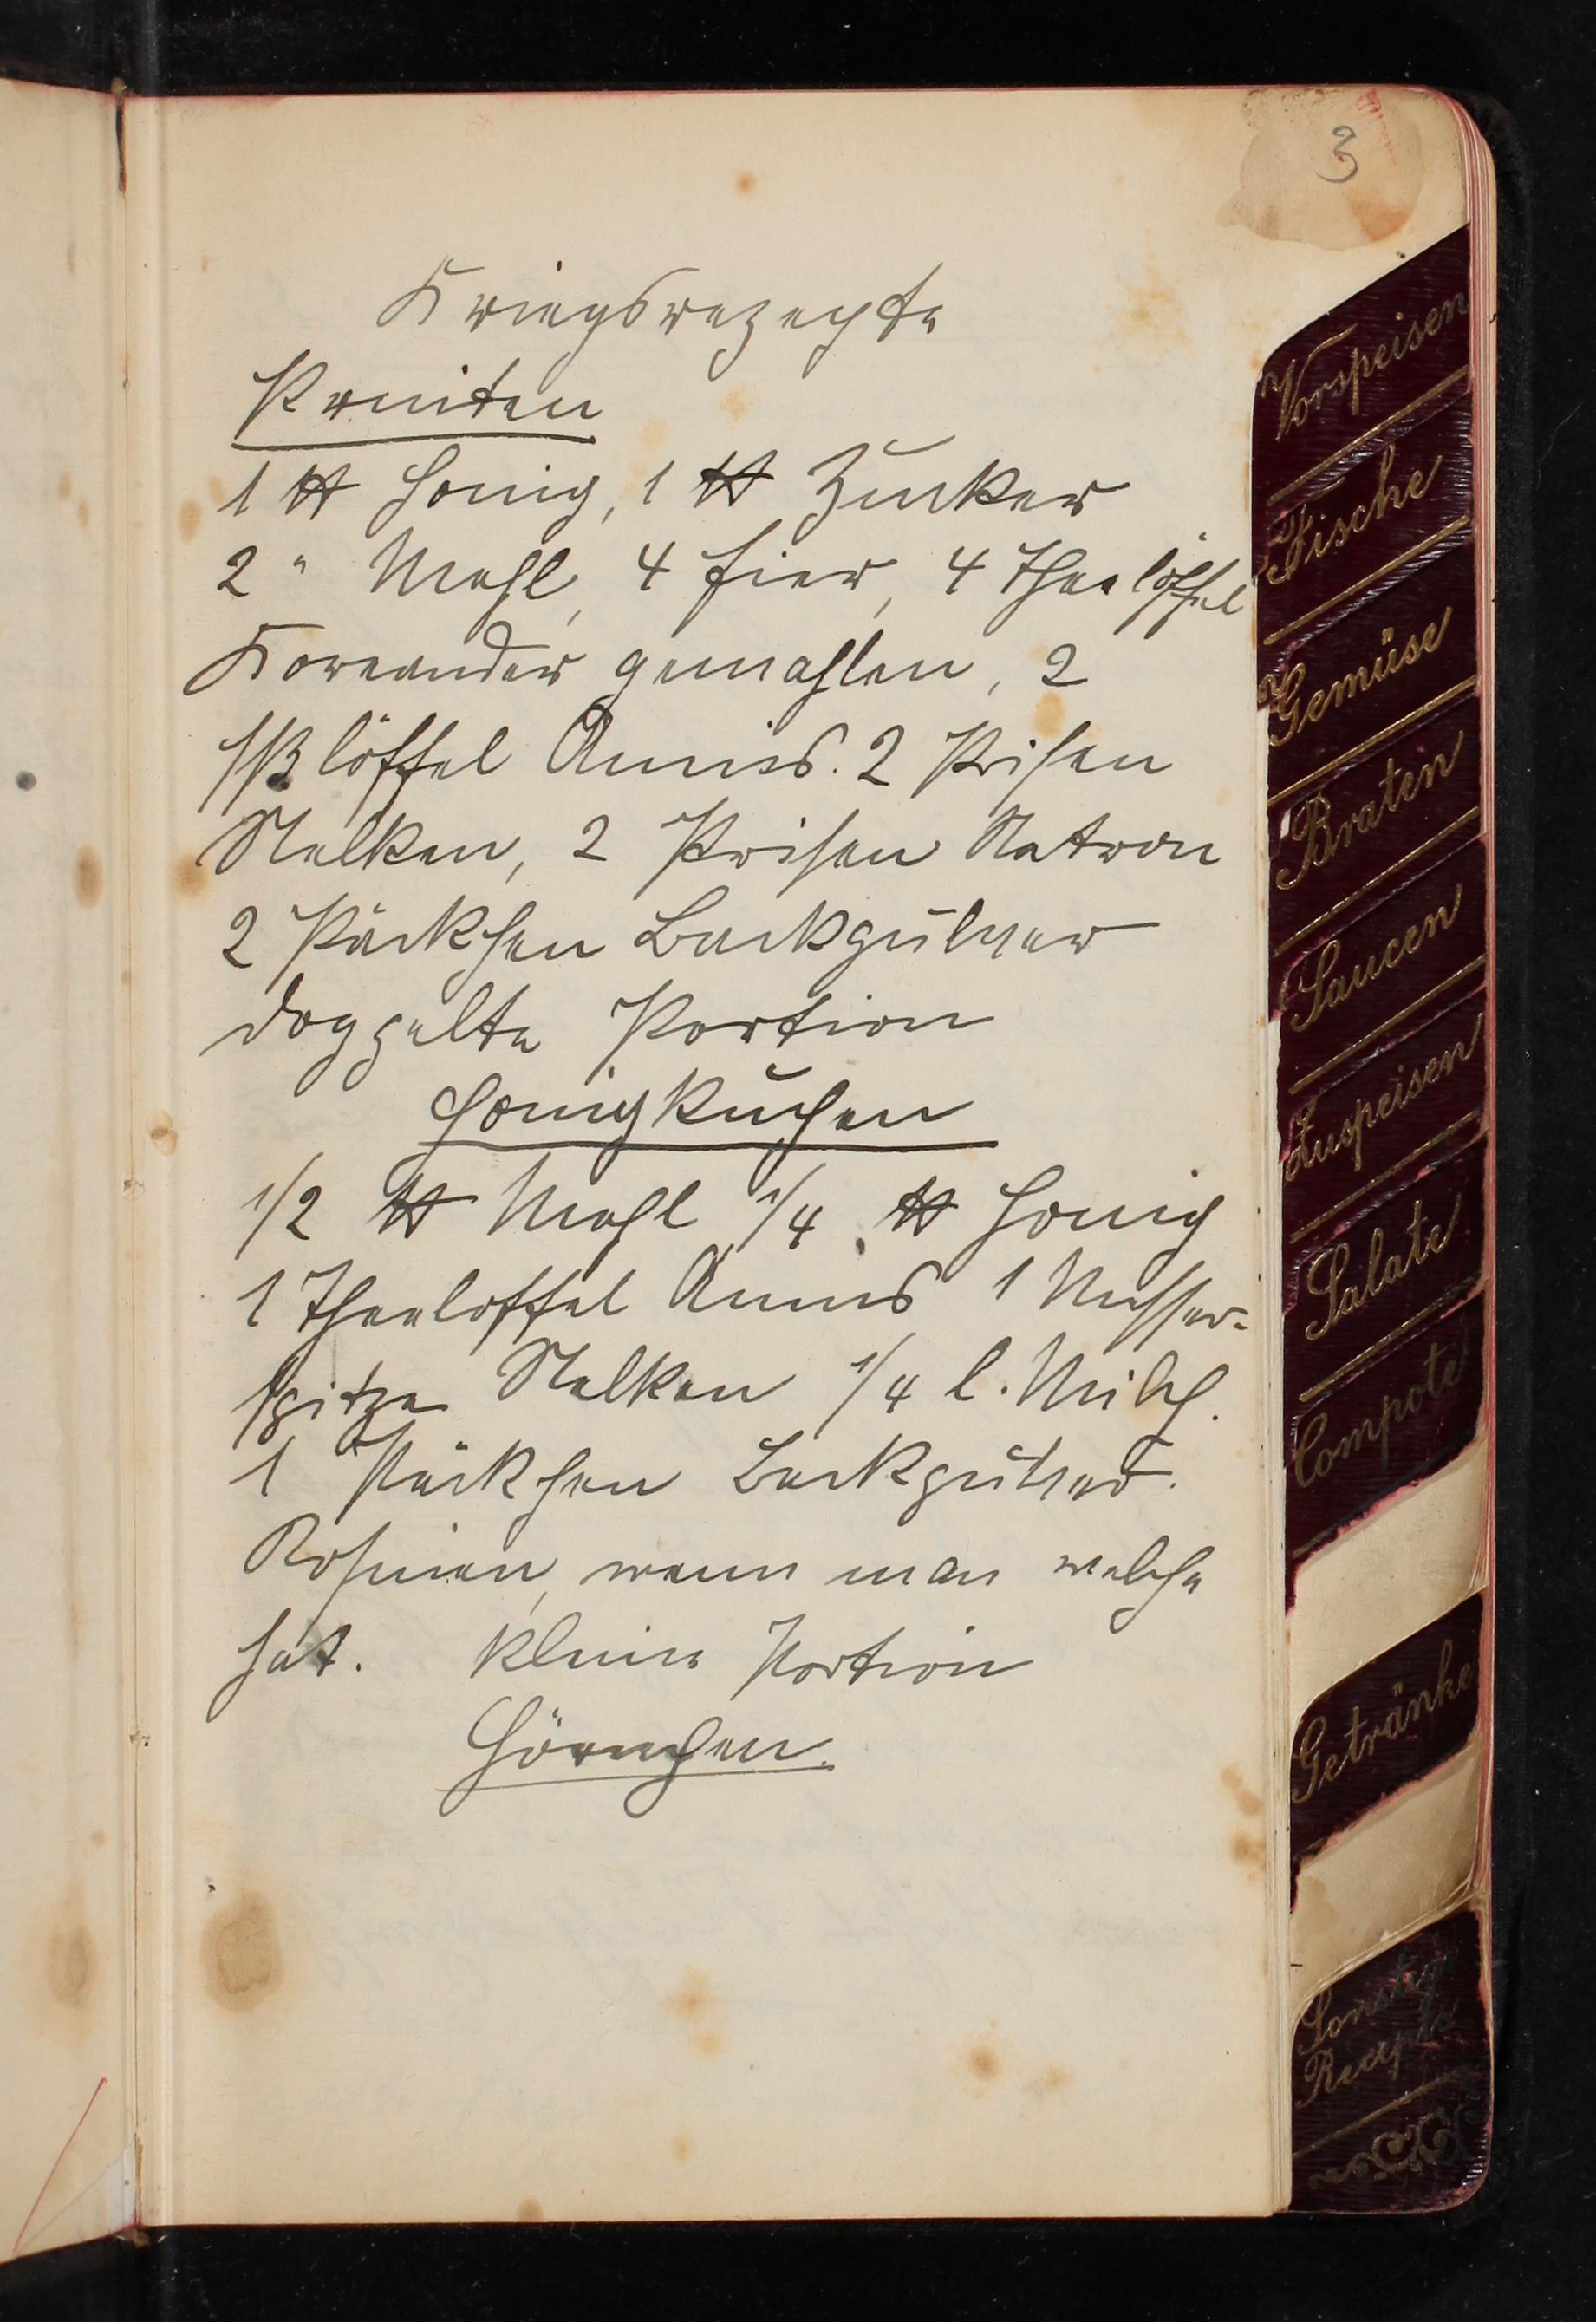 3
Kriegsrezepte
Printen
1 ℔ Honig, 1 ℔ Zucker
2 " Mehl, 4 Eier, 4 Theelöffel
Koreander gemahlen, 2
Eßlöffel Annis. 2 Prisen
Nelken, 2 Prisen Natron
2 Päckchen Backpulver
doppelte Portion
Honigkuchen
1/2 ℔ Mehl, 1/4 ℔ Honig
1 Theeloffel Annis 1 Messer-
spitze Nelken 1/4 l. Milch.
1 Päckchen Backpulver.
Rosinen, wenn man welche
hat. kleine Portion
Hörnchen.
Vorspeisen
Fische
Gemüse
Braten
Saucen
Zuspeisen
Salate
Compote
Getränke
Sonstige
Recepte